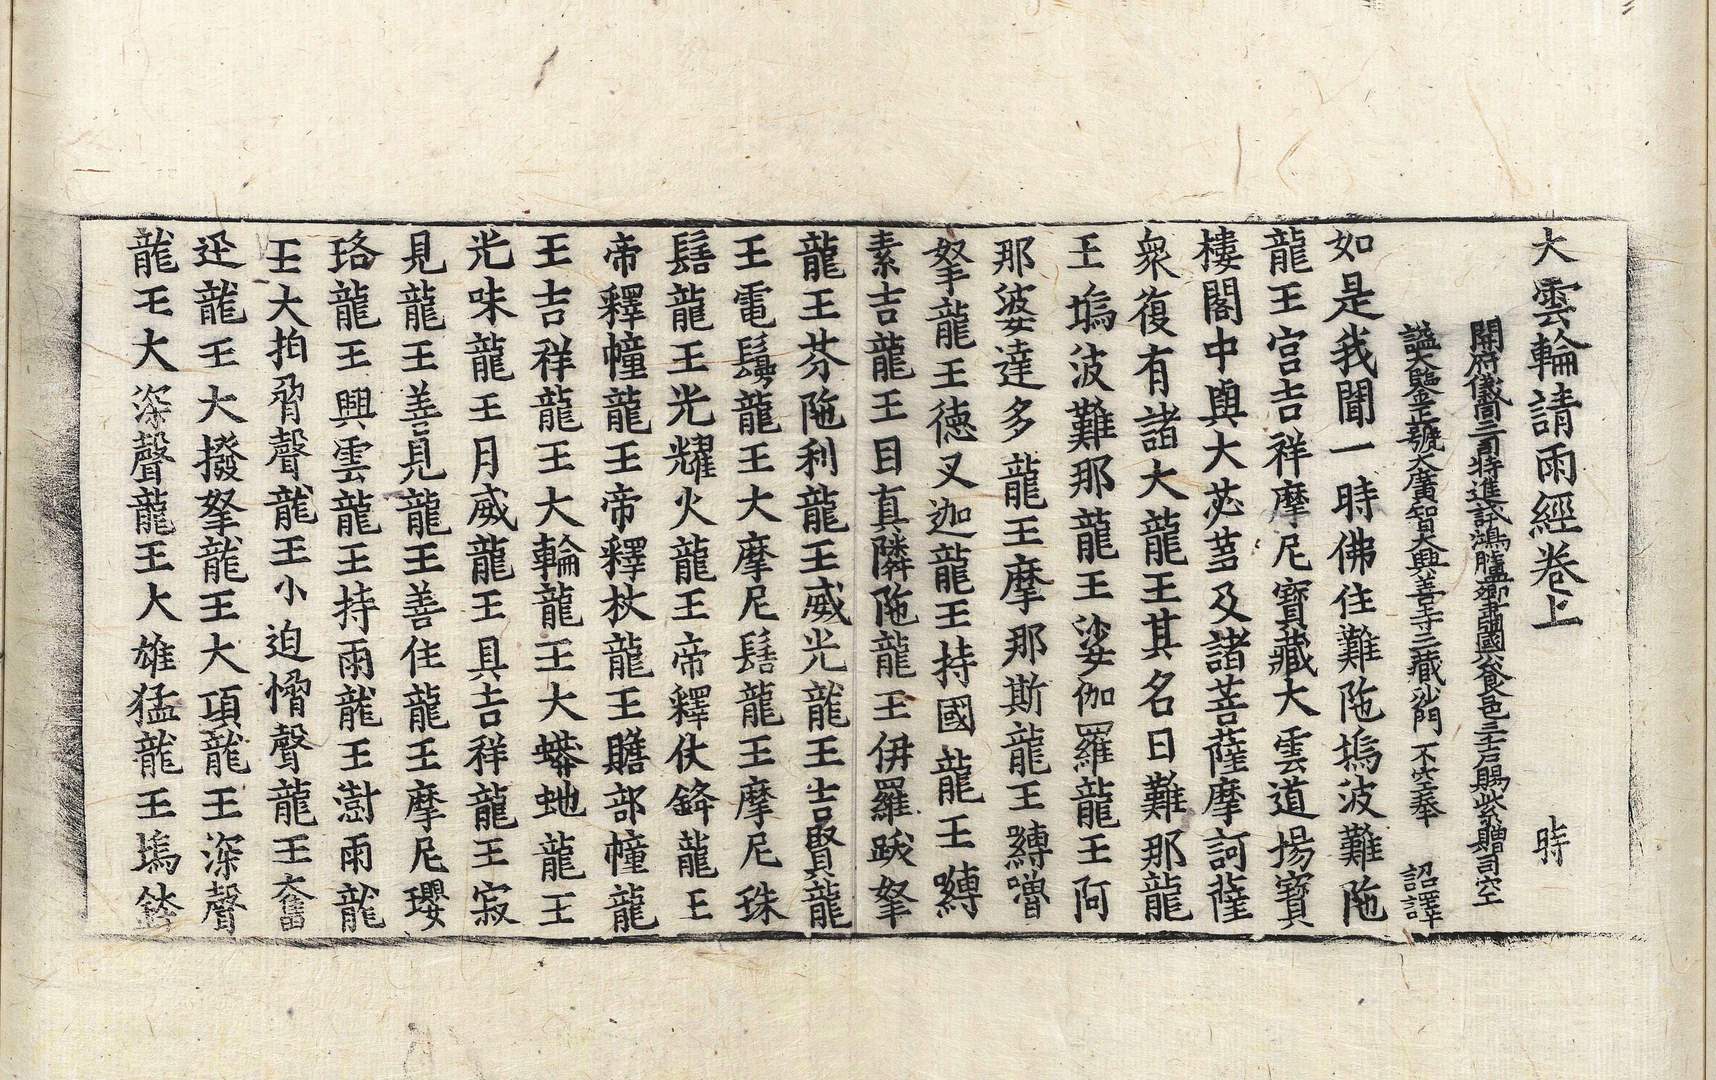 大雲輪請雨經卷上　時
開府儀同三司特進試鴻臚卿肅國公食邑三千戶賜紫贈司空
謚大鑒正號大廣智大興善寺三藏沙門不空奉　詔譯
如是我聞一時佛住難陁塢波難陁
龍王宮吉祥摩尼寶藏大雲道場寶
樓閣中與大苾芻及諸菩薩摩訶薩
衆復有諸大龍王其名曰難那龍
王塢波難那龍王娑伽羅龍王阿
那婆達多龍王摩那斯龍王嚩嚕
拏龍王德叉迦龍王持國龍王嚩
素吉龍王目真隣陁龍王伊羅跋拏
龍王芬陁利龍王威光龍王吉賢龍
王電鬘龍王大摩尼髻龍王摩尼珠
髻龍王光耀火龍王帝釋仗鋒龍王
帝釋幢龍王帝釋杖龍王贍部幢龍
王吉祥龍王大輪龍王大蟒虵龍王
光味龍王月威龍王具吉祥龍王寂
見龍王善見龍王善住龍王摩尼瓔
珞龍王興雲龍王持雨龍王澍雨龍
王大拍脅聲龍王小迫愶聲龍王奮
迅龍王大撥拏龍王大項龍王深聲
龍王大深聲龍王大雄猛龍王塢鉢